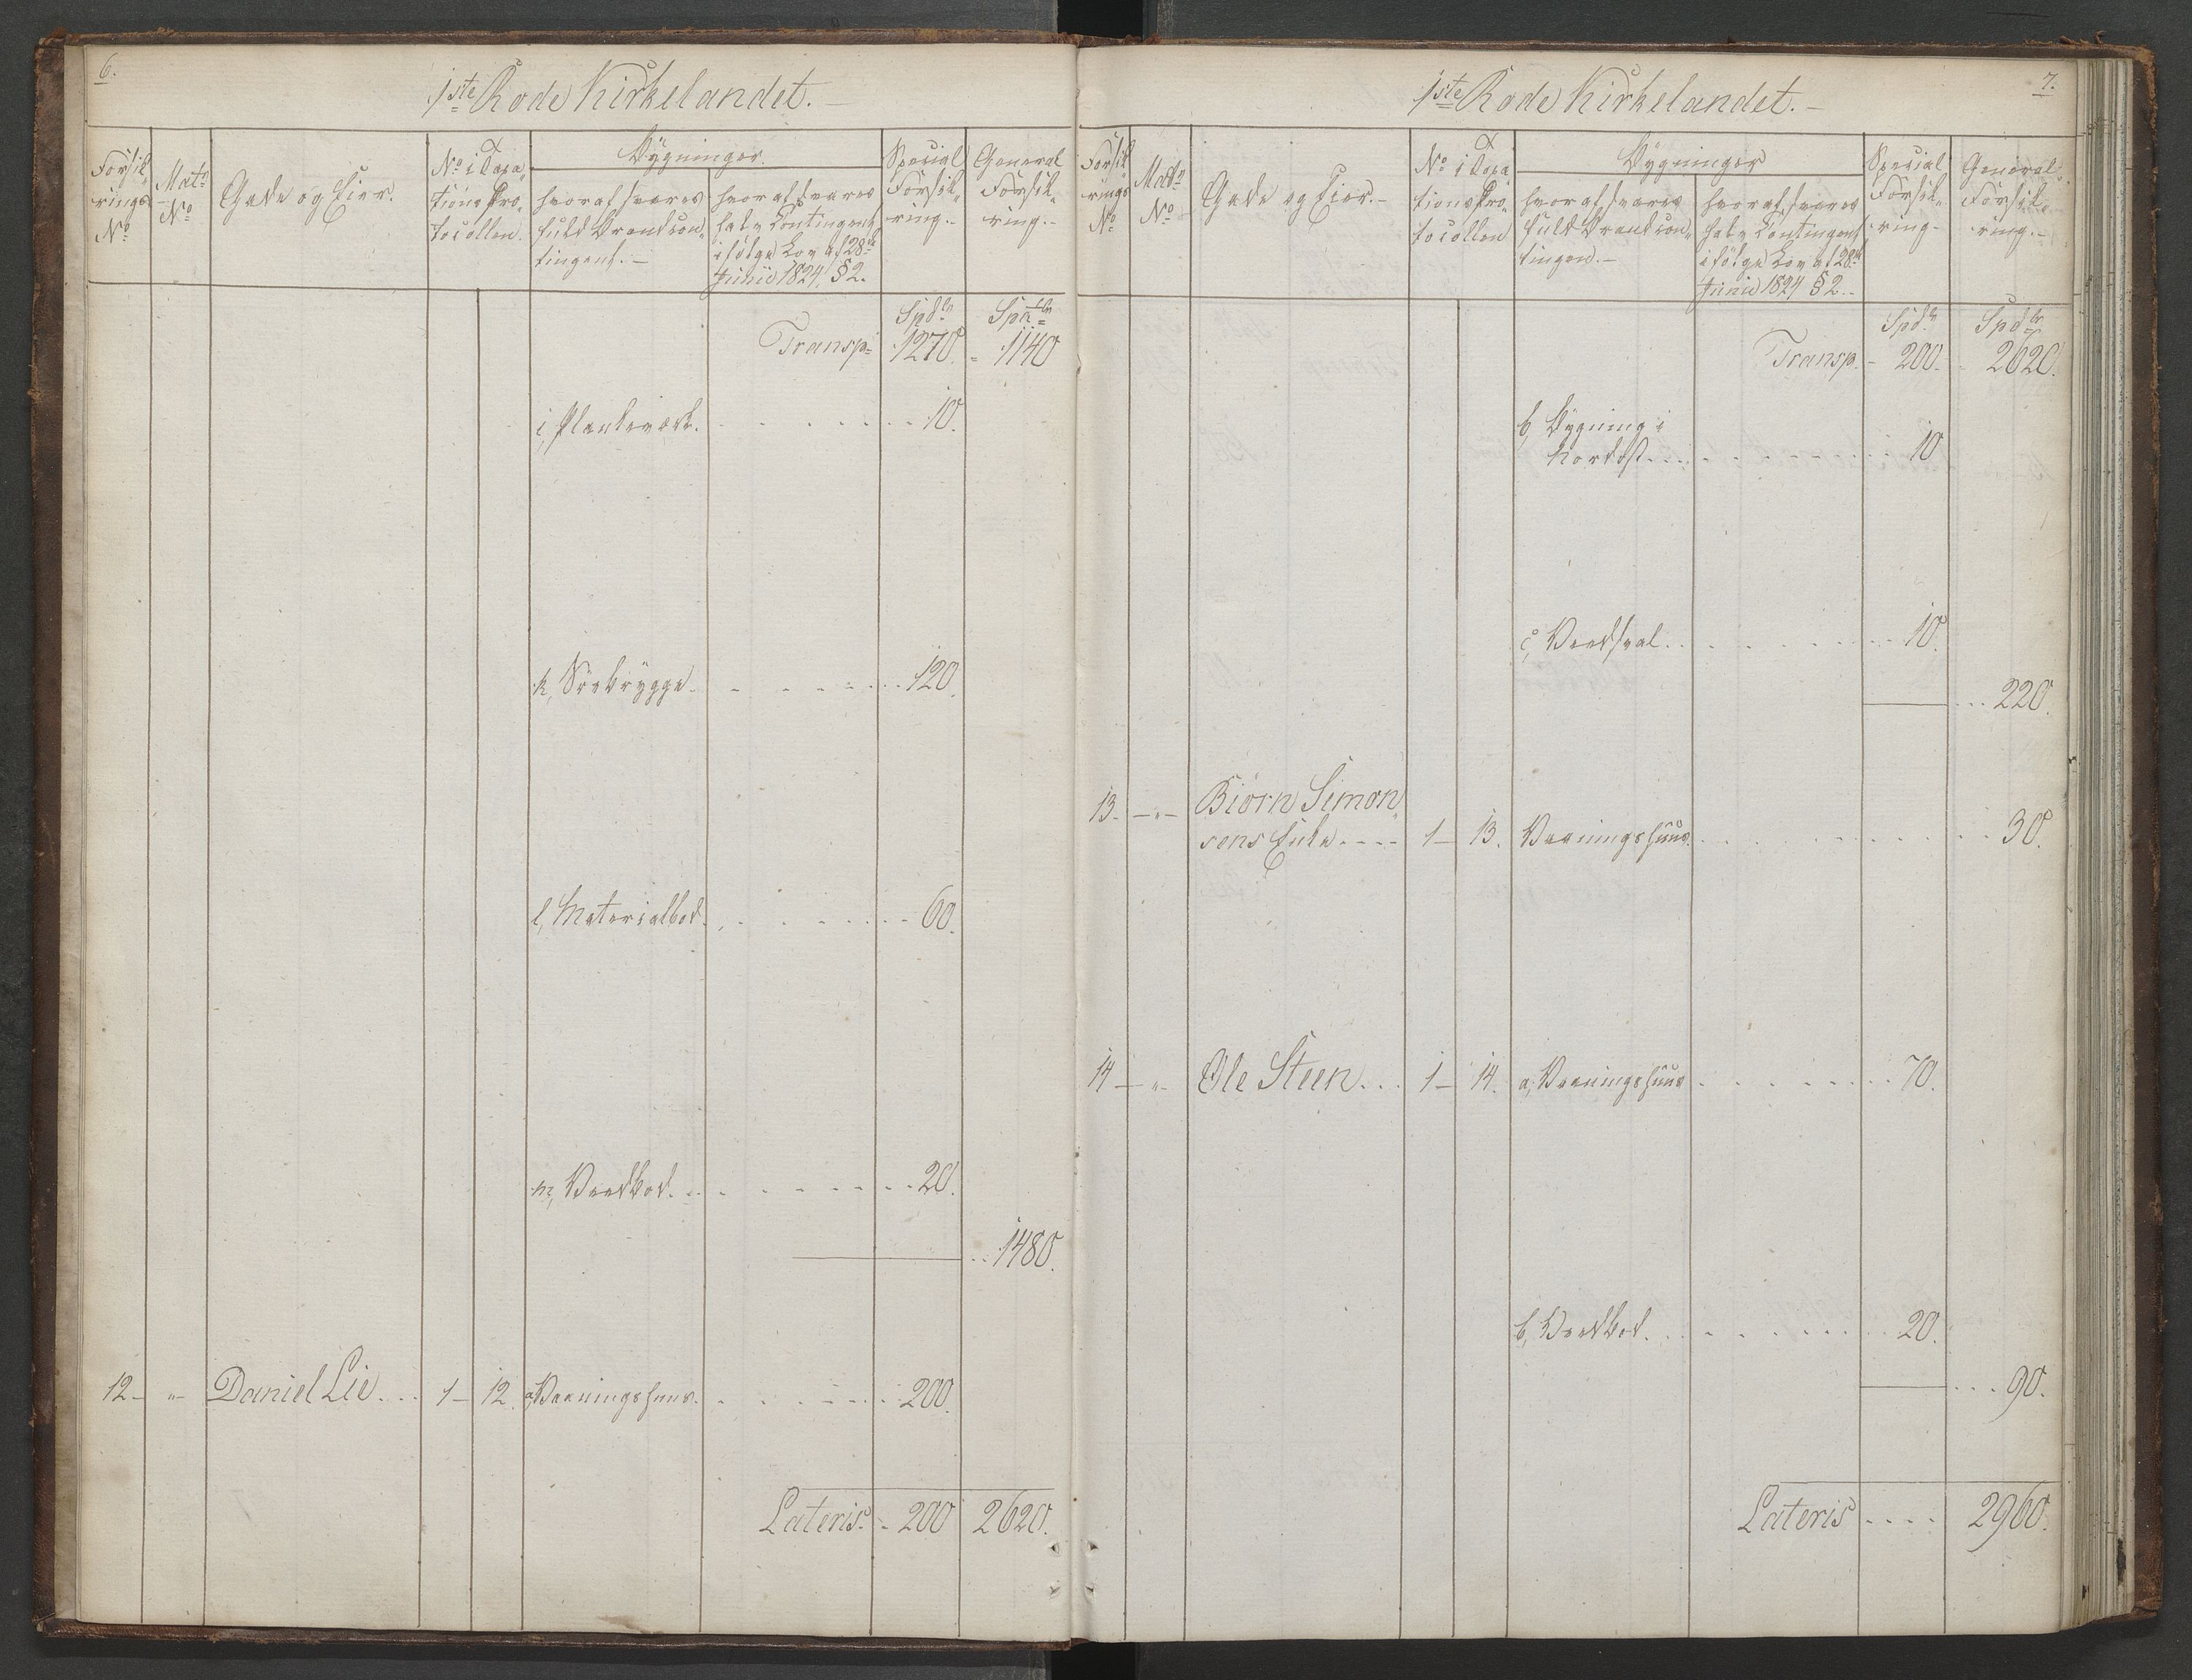 6.
1ste Rode Kirkelandet.
Forsik-
rings
No
Matr
No
Gade og Eier.
No i Taxa-
tions Pro-
tocollen.
Bygninger.
hvoraf svares
fuld Brandcon-
tingent.
hvoraf svares
halv Contingent
ifölge Lov af 28de
Junii 1824, § 2.
Special
Forsik-
ring.
General
Forsik-
ring.
Spdlr
Spdlr
Transp. 1270. 1140
i, Plankeværk. 10.
k, Söebrygge. 120.
l, Materialbod. 60.
m, Vedbod. 20.
1480.
12 „ Daniel Lie 1 12. a, Vaaningshuus. 200.
Lateris. 200 2620.
7.
1ste Rode Kirkelandet.
Forsik-
rings
No
Matr
No
Gade og Eier.
No i Taxa-
tions Pro-
tocollen
Bygninger
hvoraf svares
fuld Brandcon-
tingen.
hvoraf svares
halv Contingent
ifölge Lov af 28de
Junii 1824 § 2.
Special
Forsik-
ring.
General
Forsik-
ring.
Spdlr
Spdlr
Transp. 200. 2620.
b, Bygning i
Nordost 10
c, Vedsval. 10.
220.
13. „ Biörn Simon-
sens Enke 1 13. Vaaningshuus. 30.
14 „ Ole Steen 1 14. a, Vaaningshuus 70.
b, Vedbod. 20.
90.
Lateris 2960.